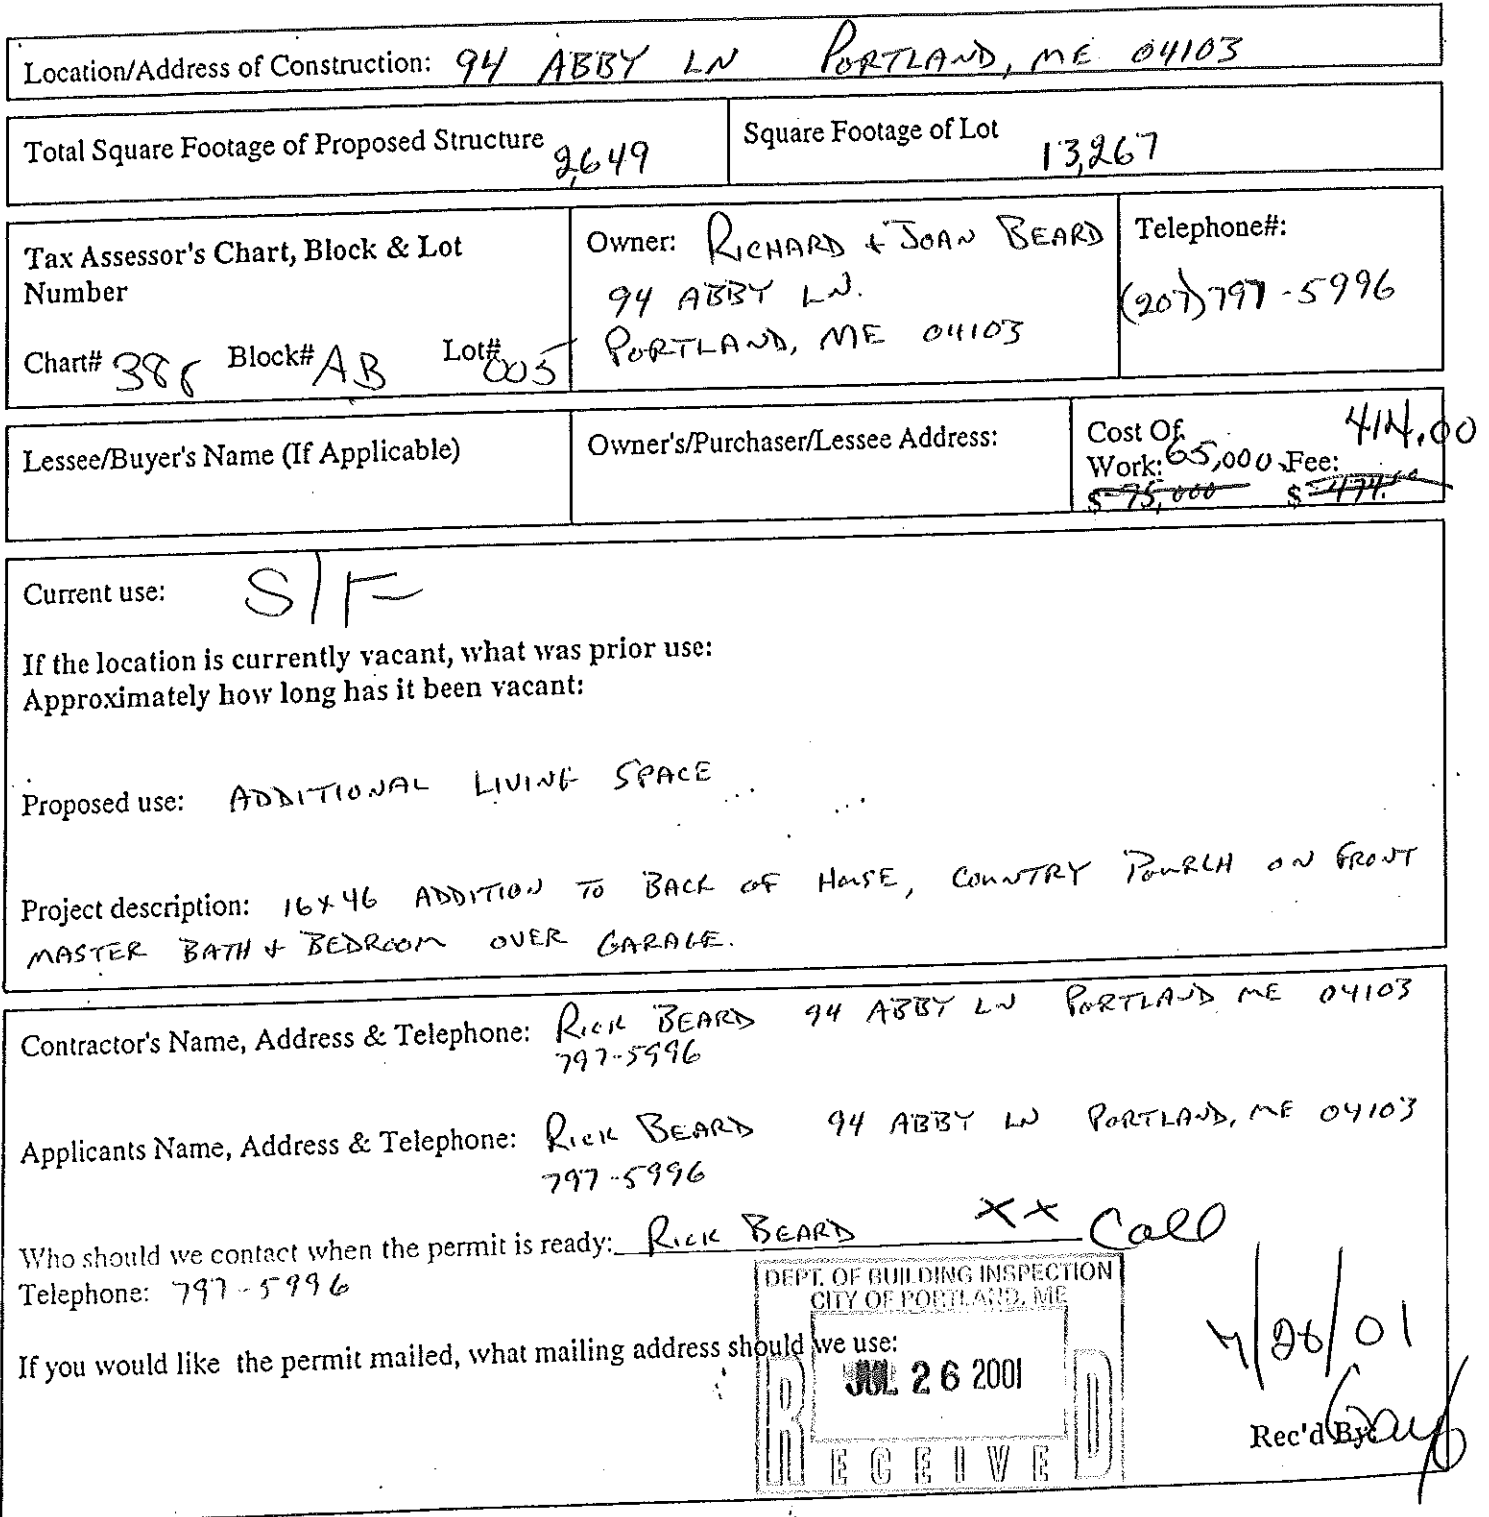 Location/Address of Construction: 94 ABBY LN PORTLAND, ME 04103
Total Square Footage of Proposed Structure 2,649
Square Footage of Lot 13,267
Tax Assessor's Chart, Block & Lot
Number
Chart# Block# AB Lot# 005
Owner: RICHARD + JOAN BEARD
94 ABBY LN.
PORTLAND, ME 04103
Telephone#:
(207) 797-5996
Lessee/Buyer's Name (If Applicable)
Owner's/Purchaser/Lessee Address:
Cost Of
Work: 65,000 Fee: 414.00
$ 75,000 $ 474.00
Current use: S/F
If the location is currently vacant, what was prior use:
Approximately how long has it been vacant:
Proposed use: ADDITIONAL LIVING SPACE
Project description: 16x46 ADDITION TO BACK OF HOUSE, COUNTRY POURCH ON FRONT
MASTER BATH + BEDROOM OVER GARAGE.
Contractor's Name, Address & Telephone: RICK BEARD 94 ABBY LN PORTLAND ME 04103
797-5996
Applicants Name, Address & Telephone: RICK BEARD 94 ABBY LN PORTLAND, ME 04103
797-5996
Who should we contact when the permit is ready: RICK BEARD XX Call
Telephone: 797-5996
If you would like the permit mailed, what mailing address should we use:
DEPT. OF BUILDING INSPECTION
CITY OF PORTLAND, ME
JUL 26 2001
RECEIVED
7/26/01
Rec'd By: